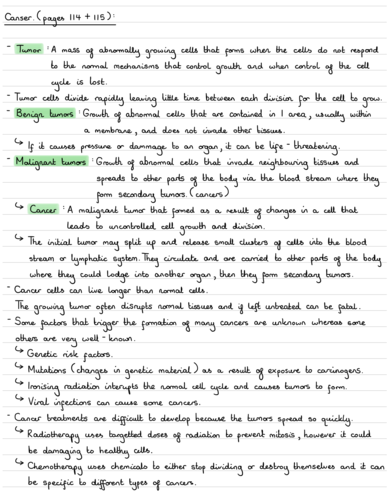 Canser. (pages 114 + 115):
- Tumor : A mass of abnormally growing cells that forms when the cells do not respond
to the normal mechanisms that control growth and when control of the cell
cycle is lost.
- Tumor cells divide rapidly leaving little time between each division for the cell to grow.
- Benign tumors : Growth of abnomal cells that are contained in 1 area, usually within
a membrane, and does not invade other tissues.
↳ If it causes pressure or damage to an organ, it can be life-threatening.
- Malignant tumors : Growth of abnomal cells that invade neighbouring tissues and
spreads to other parts of the body via the blood stream where they
form secondary tumors. (cancers)
↳ Cancer : A malignant tumor that fomed as a result of changes in a cell that
leads to uncontrolled cell growth and division.
↳ The initial tumor may split up and release small clusters of cells into the blood
stream or lymphatic system. They circulate and are carried to other parts of the body
where they could lodge into another organ, then they form secondary tumors.
- Cancer cells can live longer than nomal cells.
The growing tumor often disrupts nomal tissues and if left untreated can be fatal.
- Some factors that trigger the formation of many cancers are unknown whereas some
others are very well-known.
↳ Genetic risk factors.
↳ Mutations (changes in genetic material) as a result of exposure to carinogens.
↳ Ionising radiation interupts the nomal cell cycle and causes tumors to form.
↳ Viral infections can cause some cancers.
- Cancer treatments are difficult to develop because the tumors spread so quickly.
↳ Radiotherapy uses targetted doses of radiation to prevent mitosis, however it could
be damaging to healthy cells.
↳ Chemotherapy uses chemicals to either stop dividing or destroy themselves and it can
be specific to different types of cancers.